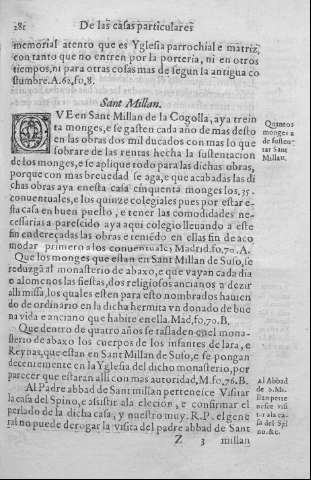 281 De las casas particulares
memorial atento que es Yglesia parrochial e matriz,
con tanto que no entren por la porteria, ni en otros
tiempos, ni para otras cosas mas de segun la antigua co
stumbre. A.62, fo,8.
Sant Millan.
QVE en Sant Millan de la Cogolla, aya trein
ta monges, e se gasten cada año de mas desto
en las obras dos mil ducados con mas lo que
sobrare de las rentas hecha la sustentacion
de los monges, e se aplique todo para las dichas obras,
porque con mas breuedad se aga, e que acabadas las di
chas obras aya en esta casa cinquenta monges los, 35.
conuentuales, e los quinze colegiales pues por estar e-
sta casa en buen puesto, e tener las comodidades ne-
cessarias a parescido aya aqui colegio lleuando a este
fin endereçadas las obras e teniẽdo en ellas fin de aco
modar primero a los conuentuales Madrid. fo,70. A.
Que los monges que estan en Sant Millan de Suso, se
reduzgã al monasterio de abaxo, e que vayan cada dia
e alomenos las fiestas, dos religiosos ancianos a dezir
alli missa, los quales esten para esto nombrados hauien
do de ordinario en la dicha hermita vn donado de bue
na vida e anciano que habite en ella. Mad, fo,70. B.
Que dentro de quatro años se trasladen en el mona-
sterio de abaxo los cuerpos de los infantes de lara, e
Reynas, que estan en Sant Millan de Suso, e se pongan
decentemente en la Yglesia del dicho monasterio, por
parecer que estaran alli con mas autoridad, M. fo,76. B.
Al Padre abbad de Sant millan pertenesce Visitar
la casa del Spino, e asistir a la eleciõn, e confirmar el
perlado de la dicha casa, y nuestro muy. R. P. el gene
ral no puede derogar la visita del padre abbad de Sant
Z 3 millan
Quantos
monges a
de susten-
tar Sant
Millan.
Al Abbad
de S. Mi-
llan perte
nesce visi
tar a la ca-
sa del Spi
no. &c.